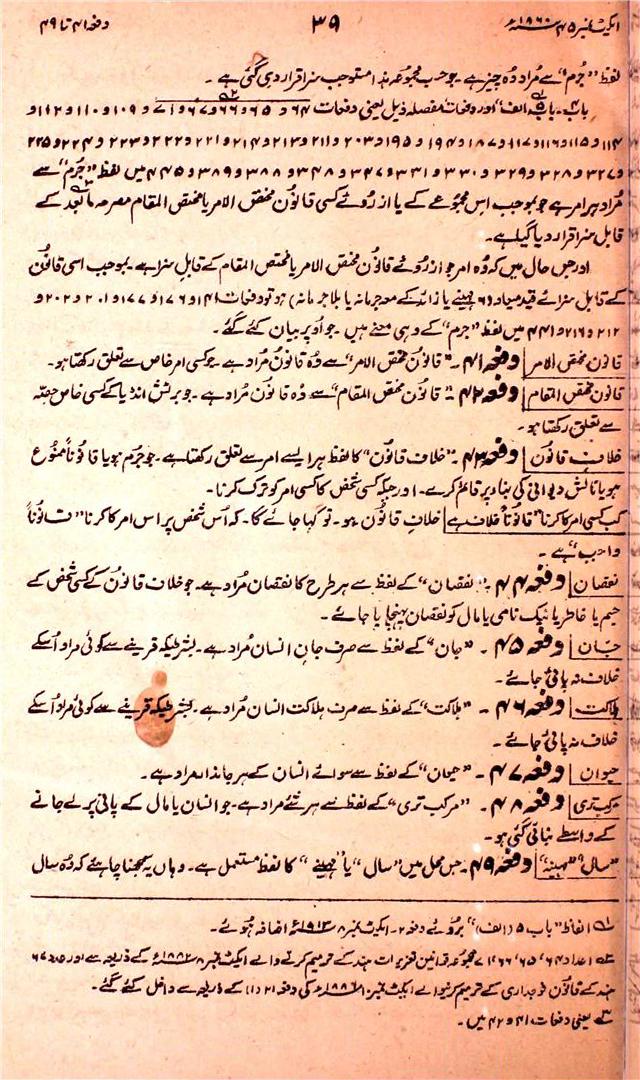 ایکٹ نمبر ۴۵ ۱۸۶۰ء ۳۹ دفعہ ۴۱ تا ۴۹
لفظ "جرم" سے مُراد وُہ چیز ہے۔ جو حسب مجموعہ ہٰذا مستوجب سزا قرار دی گئی ہے۔
باب ۴۔ باب ۵ الف" اور دفعات مفصلہ ذیل یعنی دفعات ۶۴ و ۶۵ و ۶۶ و ۶۷ و ۷۱ و ۱۰۹ و ۱۱۰ و ۱۱۲ و
۱۱۴ و ۱۱۵ و ۱۱۶ و ۱۱۷ و ۱۸۷ و ۱۹۴ و ۱۹۵ و ۲۰۳ و ۲۱۱ و ۲۱۳ و ۲۱۴ و ۲۲۱ و ۲۲۲ و ۲۲۳ و ۲۲۴ و ۲۲۵
و ۳۲۷ و ۳۲۸ و ۳۲۹ و ۳۳۰ و ۳۳۱ و ۳۴۷ و ۳۴۸ و ۳۸۸ و ۳۸۹ و ۴۴۵ میں لفظ "جرم" سے
مُراد ہر امر ہے جو بموجب اس مجموعے کے یا از روئے کسی قانون مختص الامر یا مختص المقام مصرحہ مابعد کے
قابل سزا قرار دیا گیا ہے۔
اور جس حال میں کہ وُہ امر جو از روئے قانون مختص الامر یا مختص المقام کے قابلِ سزا ہے۔ بموجب اسی قانون
کے قابل سزائے قید میعادی ۶ مہینے یا زائد کے مع جرمانہ یا بلا جرمانہ) ہو تو دفعات ۱۴۱ و ۱۷۶ و ۱۷۷ و ۲۰۱ و ۲۰۲ و
۲۱۲ و ۲۱۶ و ۴۴۱ میں لفظ "جرم" کے وہی معنے ہیں۔ جو اُوپر بیان کئے گئے۔
قانون مختص الامر دفعہ ۴۱۔ "قانون مختص الامر" سے وُہ قانون مُراد ہے۔ جو کسی امر خاص سے تعلق رکھتا ہو۔
قانون مختص المقام دفعہ ۴۲۔ "قانون مختص المقام" سے وُہ قانون مُراد ہے۔ جو برٹش انڈیا کے کسی خاص حصّہ
سے تعلق رکھتا ہو۔
خلاف قانون دفعہ ۴۳۔ "خلاف قانون" کا لفظ ہر ایسے امر سے تعلق رکھتا ہے۔ جو جُرم ہو یا قانوناً ممنوع
ہو یا نالش دیوانی کی بنیاد پر قائم کرے۔ اور جبکہ کسی شخص کا کسی امر کو ترک کرنا۔
کب کسی امر کا کرنا "قانوناً خلاف" ہے خلاف قانون ہو۔ تو کہا جائے گا۔ کہ اُس شخص پر اس امر کا کرنا "قانوناً
واجب" ہے۔
نقصان دفعہ ۴۴۔ "نقصان" کے لفظ سے ہر طرح کا نقصان مُراد ہے۔ جو خلاف قانون کے کسی شخص کے
جسم یا خاطر یا نیک نامی یا مال کو نقصان پہنچایا جائے۔
جان دفعہ ۴۵۔ "جان" کے لفظ سے صرف جانِ انسان مُراد ہے۔ بشرطیکہ قرینے سے کوئی مراد اُسکے
خلاف نہ پائی جائے۔
ہلاکت دفعہ ۴۶۔ "ہلاکت" کے لفظ سے صرف ہلاکت انسان مُراد ہے۔ بشرطیکہ قرینے سے کوئی مراد اُسکے
خلاف نہ پائی جائے۔
حیوان دفعہ ۴۷۔ "حیوان" کے لفظ سے سوائے انسان کے ہر جاندار مراد ہے۔
مرکب تری دفعہ ۴۸۔ "مرکب تری" کے لفظ سے ہر شئے مراد ہے۔ جو انسان یا مال کے پانی پر لے جانے
کے واسطے بنائی گئی ہو۔
"سال" "مہینہ" دفعہ ۴۹۔ جس محل میں "سال" یا "مہینے" کا لفظ مستعمل ہے۔ وہاں یہ سمجھنا چاہئے کہ وُہ سال
۱؎ الفاظ "باب ۵ (الف)" بروئے دفعہ ۲۔ ایکٹ نمبر ۸ ۱۹۱۳ء اضافہ ہوئے۔
۲؎ اعداد ۶۴، ۶۵، ۶۶، ۷۱ مجموعہ قوانین تعزیرات ہند کے ترمیم کرنے والے ایکٹ نمبر ۸ ۱۸۸۲ء کے ذریعہ سے اور عدد ۶۷
ہند کے قانون فوجداری کے ترمیم کرنیوالے ایکٹ نمبر ۱۰ ۱۸۸۶ء کی دفعہ ۲۱ (۱) کے ذریعہ سے داخل کئے گئے۔
۳؎ یعنی دفعات ۴۱ و ۴۲ میں۔